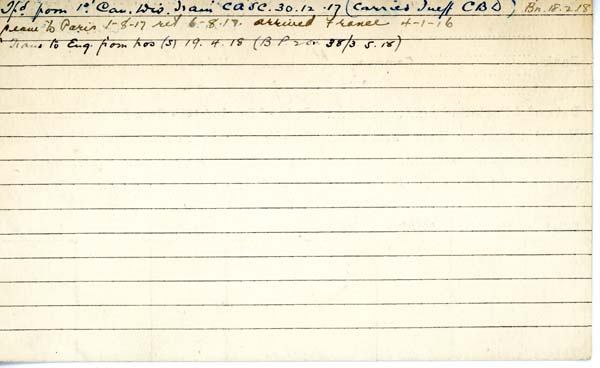 Tfd from 1st Can. Div. Train CASC. 30.12.17 (Carried Ineff CBD) Bn. 18.2.18
leave to Paris 1-8-17 ret 6-8-17. arrived France 4-1-16
Trans to Eng. from hos (S) 19.4.18 (B P 38/3 5.18)